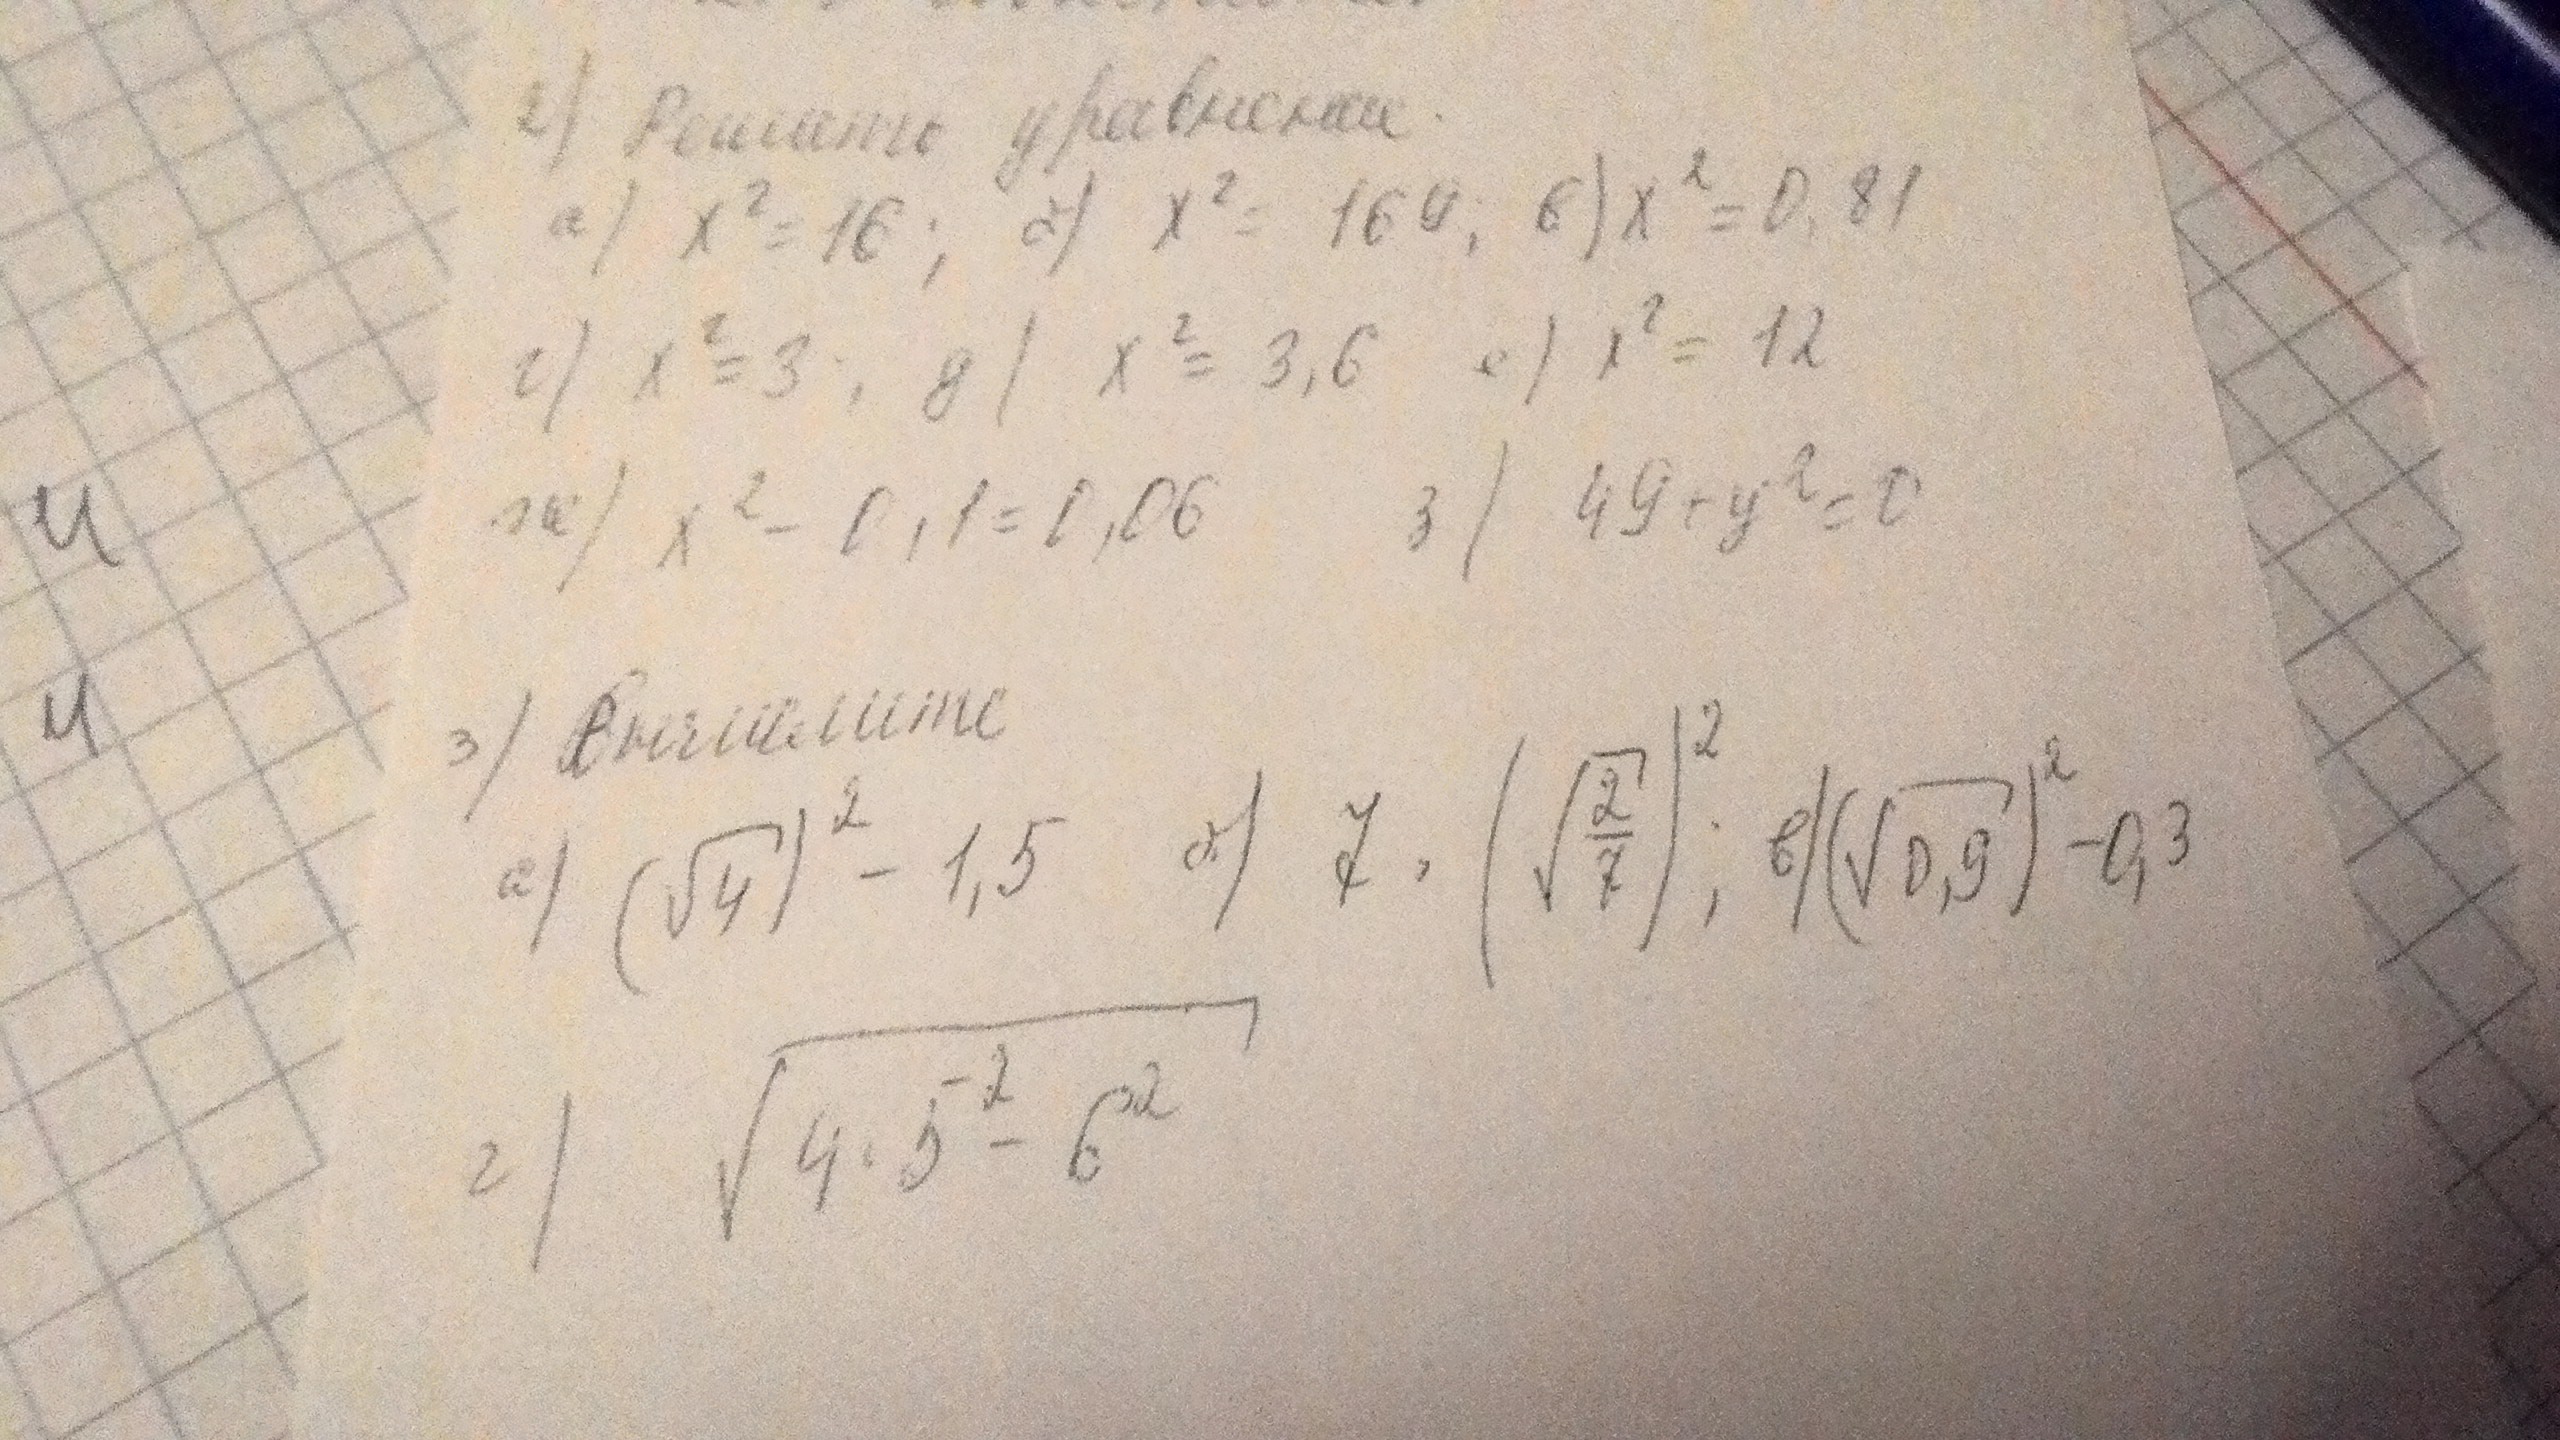 2) Решить уравнение.
а) x² = 16; б) x² = 169; в) x² = 0,81
г) x² = 3; д) x² = 3,6 е) x² = 12
ж) x² - 0,1 = 0,06 з) 49 + y² = 0
И
И
3) Вычислите
а) (√4)² - 1,5 б) 7 · (√(2/7))²; в) (√0,9)² - 0,3
г) √(4 · 5⁻² - 6²)